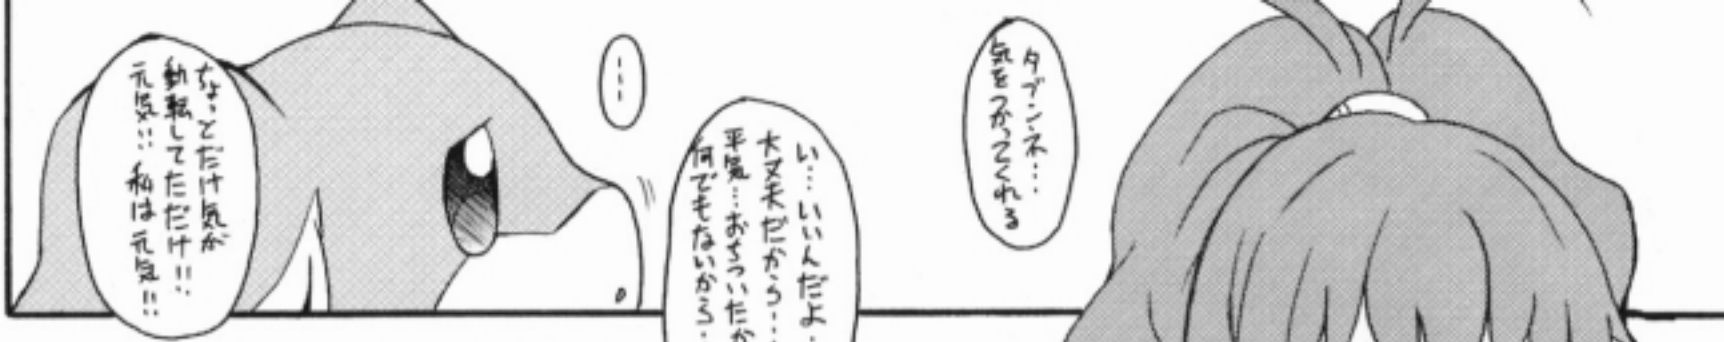 タブンネ…
気をつかってくれる
い…いいんだよ…
大丈夫だから…
平気…おちついたか
何でもないから…
…
ちょっとだけ気が
動転してただけ!!
元気!! 私は元気!!